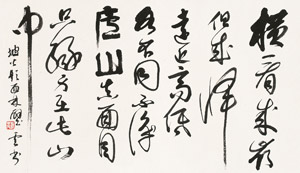 横看成岭
侧成峰
远近高低
各不同不识
庐山真面目
只缘身在此山
中
西林壁